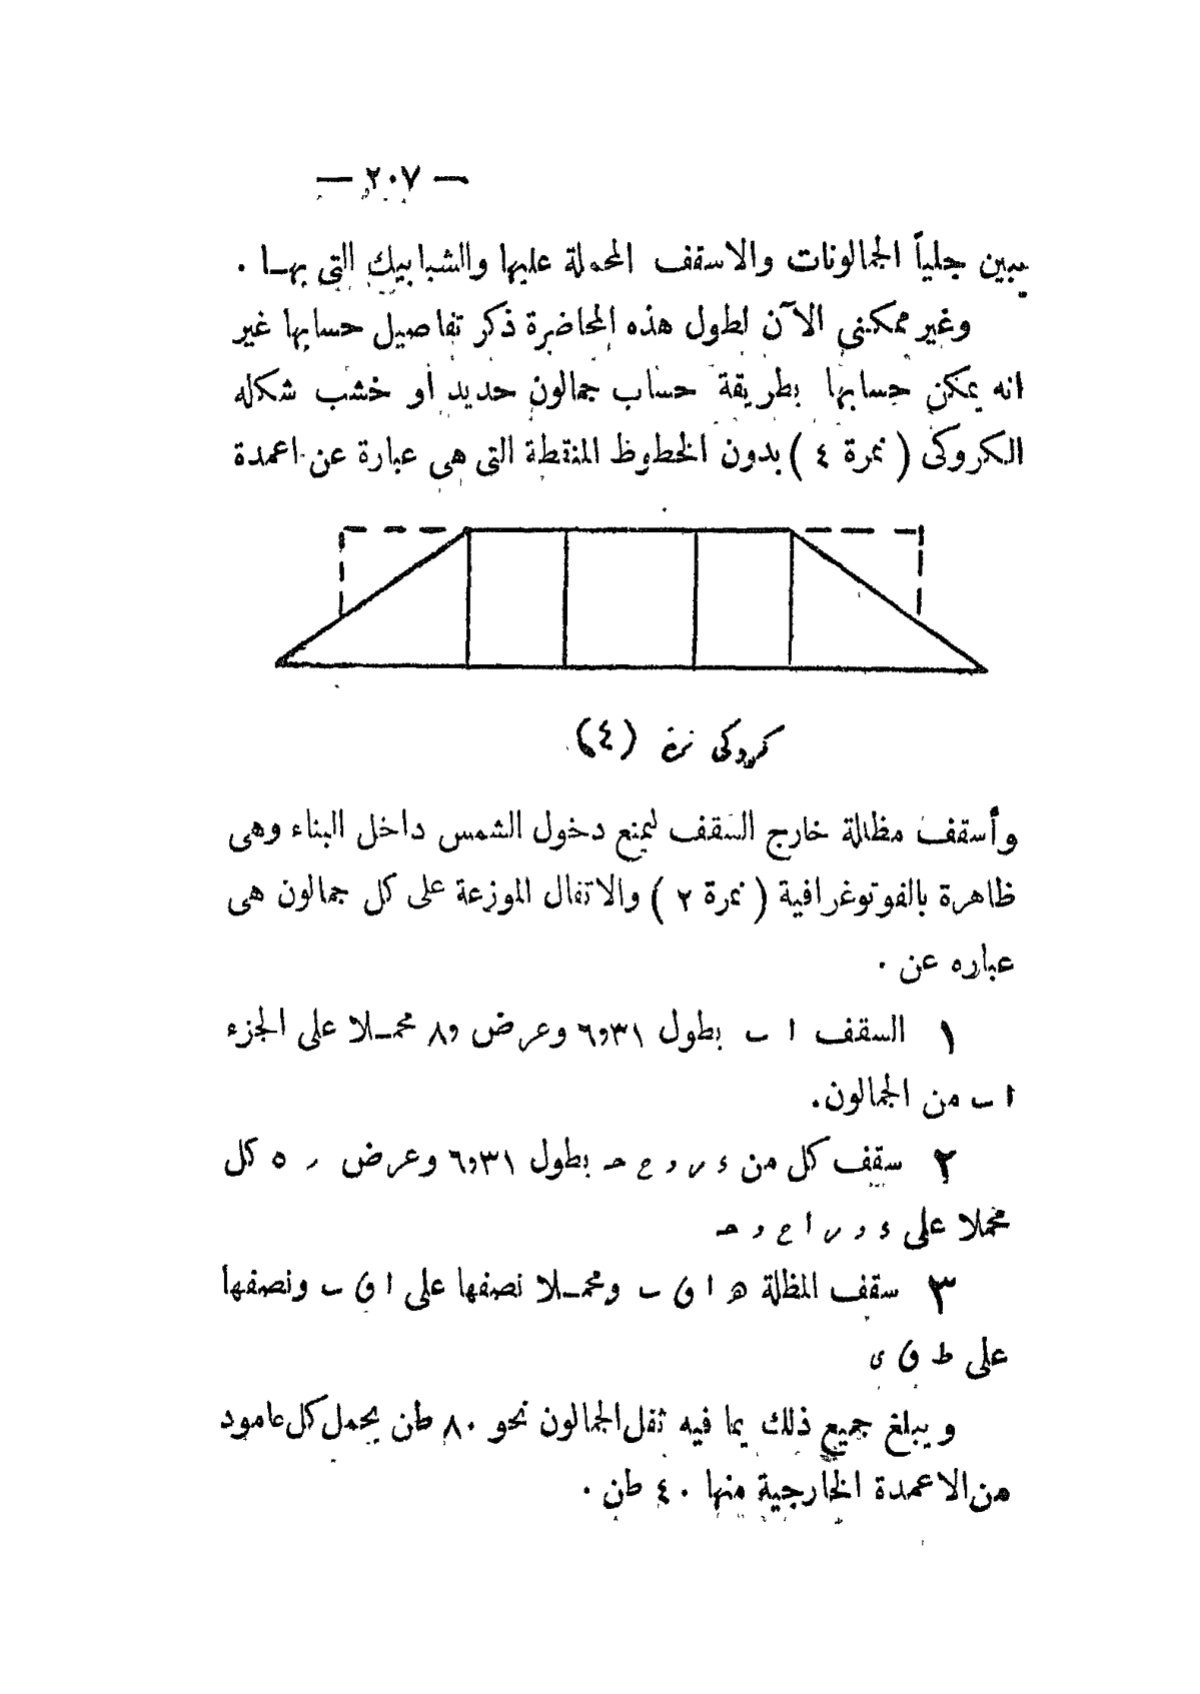 — ٢٠٧ —
يبين جلياً الجمالونات والاسقف المحملة عليها والشبابيك التى بهـا .
وغير ممكننى الآن لطول هذه المحاضرة ذكر تفاصيل حسابها غير
انه يمكن حسابها بطريقة حساب جمالون حديد أو خشب شكله
الكروكى ( نمرة ٤ ) بدون الخطوط المنقطة التى هى عبارة عن اعمدة
كروكى نمرة (٤)
وأسقف مظالة خارج السقف ليمنع دخول الشمس داخل البناء وهى
ظاهرة بالفوتوغرافية ( نمرة ٢ ) والاثقال الموزعة على كل جمالون هى
عباره عن .
١ السقف ا ب بطول ٦٫٣١ وعرض ٨٫ محمـلا على الجزء
ا ب من الجمالون.
٢ سقف كل من ء ر و ع حـ بطول ٦٫٣١ وعرض ر ٥ كل
محملا على ء و ر ا ع و حـ
٣ سقف المظلة هـ ا ق ب ومحمـلا نصفها على ا ق ب ونصفها
على ط ق ى
ويبلغ جميع ذلك بما فيه ثقل الجمالون نحو ٨٠ طن يحمل كل عامود
من الاعمدة الخارجية منها ٤٠ طن .